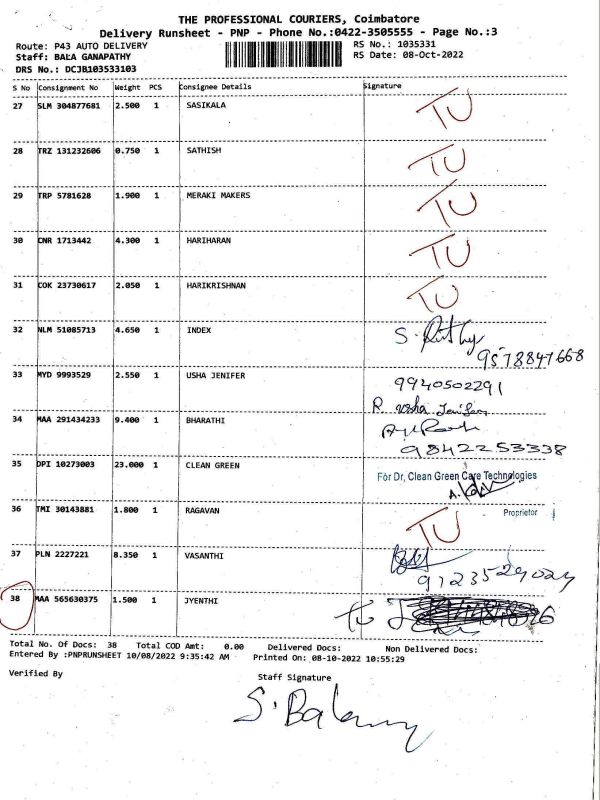 THE PROFESSIONAL COURIERS, Coimbatore
Delivery Runsheet - PNP - Phone No.:0422-3505555 - Page No.:3
Route: P43 AUTO DELIVERY RS No.: 1035331
Staff: BALA GANAPATHY RS Date: 08-Oct-2022
DRS No.: DCJB103533103
S No Consignment No Weight PCS Consignee Details Signature
27 SLM 304877681 2.500 1 SASIKALA TU
28 TRZ 131232606 0.750 1 SATHISH TU
29 TRP 5781628 1.900 1 MERAKI MAKERS TU
30 CNR 1713442 4.300 1 HARIHARAN TU
31 COK 23730617 2.050 1 HARIKRISHNAN TU
32 NLM 51085713 4.650 1 INDEX S.
9578847668
33 MYD 9993529 2.550 1 USHA JENIFER 9940502291
R. usha Jenifer
34 MAA 291434233 9.400 1 BHARATHI
9842253338
35 DPI 10273003 23.000 1 CLEAN GREEN For Dr, Clean Green Care Technologies
Proprietor
36 TMI 30143881 1.800 1 RAGAVAN TU
37 PLN 2227221 8.350 1 VASANTHI
9123529029
38 MAA 565630375 1.500 1 JYENTHI TU
Total No. Of Docs: 38 Total COD Amt: 0.00 Delivered Docs: Non Delivered Docs:
Entered By :PNPRUNSHEET 10/08/2022 9:35:42 AM Printed On: 08-10-2022 10:55:29
Verified By Staff Signature
S. Balamy